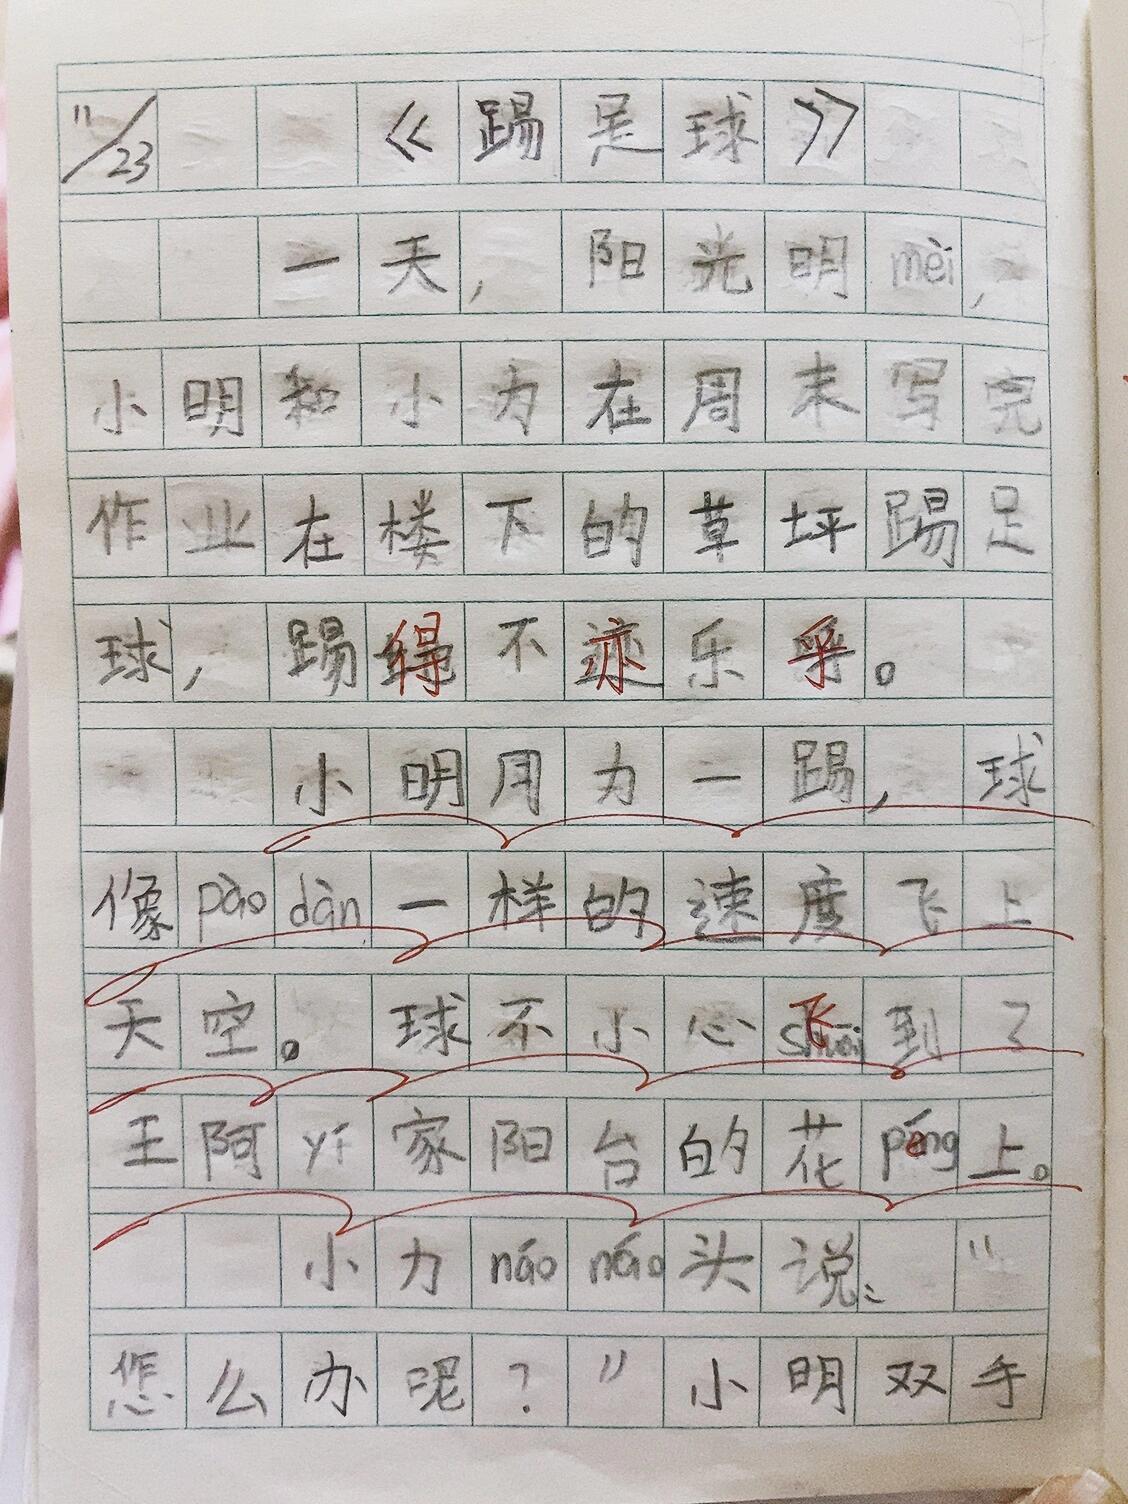 11/23 《踢足球》
一天，阳光明mèi，
小明和小力在周末写完
作业在楼下的草坪踢足
球，踢得不亦乐乎。
小明用力一踢，球
像pàodàn一样的速度飞上
天空。球不小心飞到了
王阿yí家阳台的花péng上。
小力náonáo头说："
怎么办呢？"小明双手